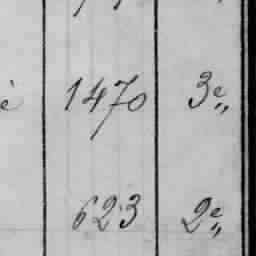 è 1470 3e,,
623 2e,,